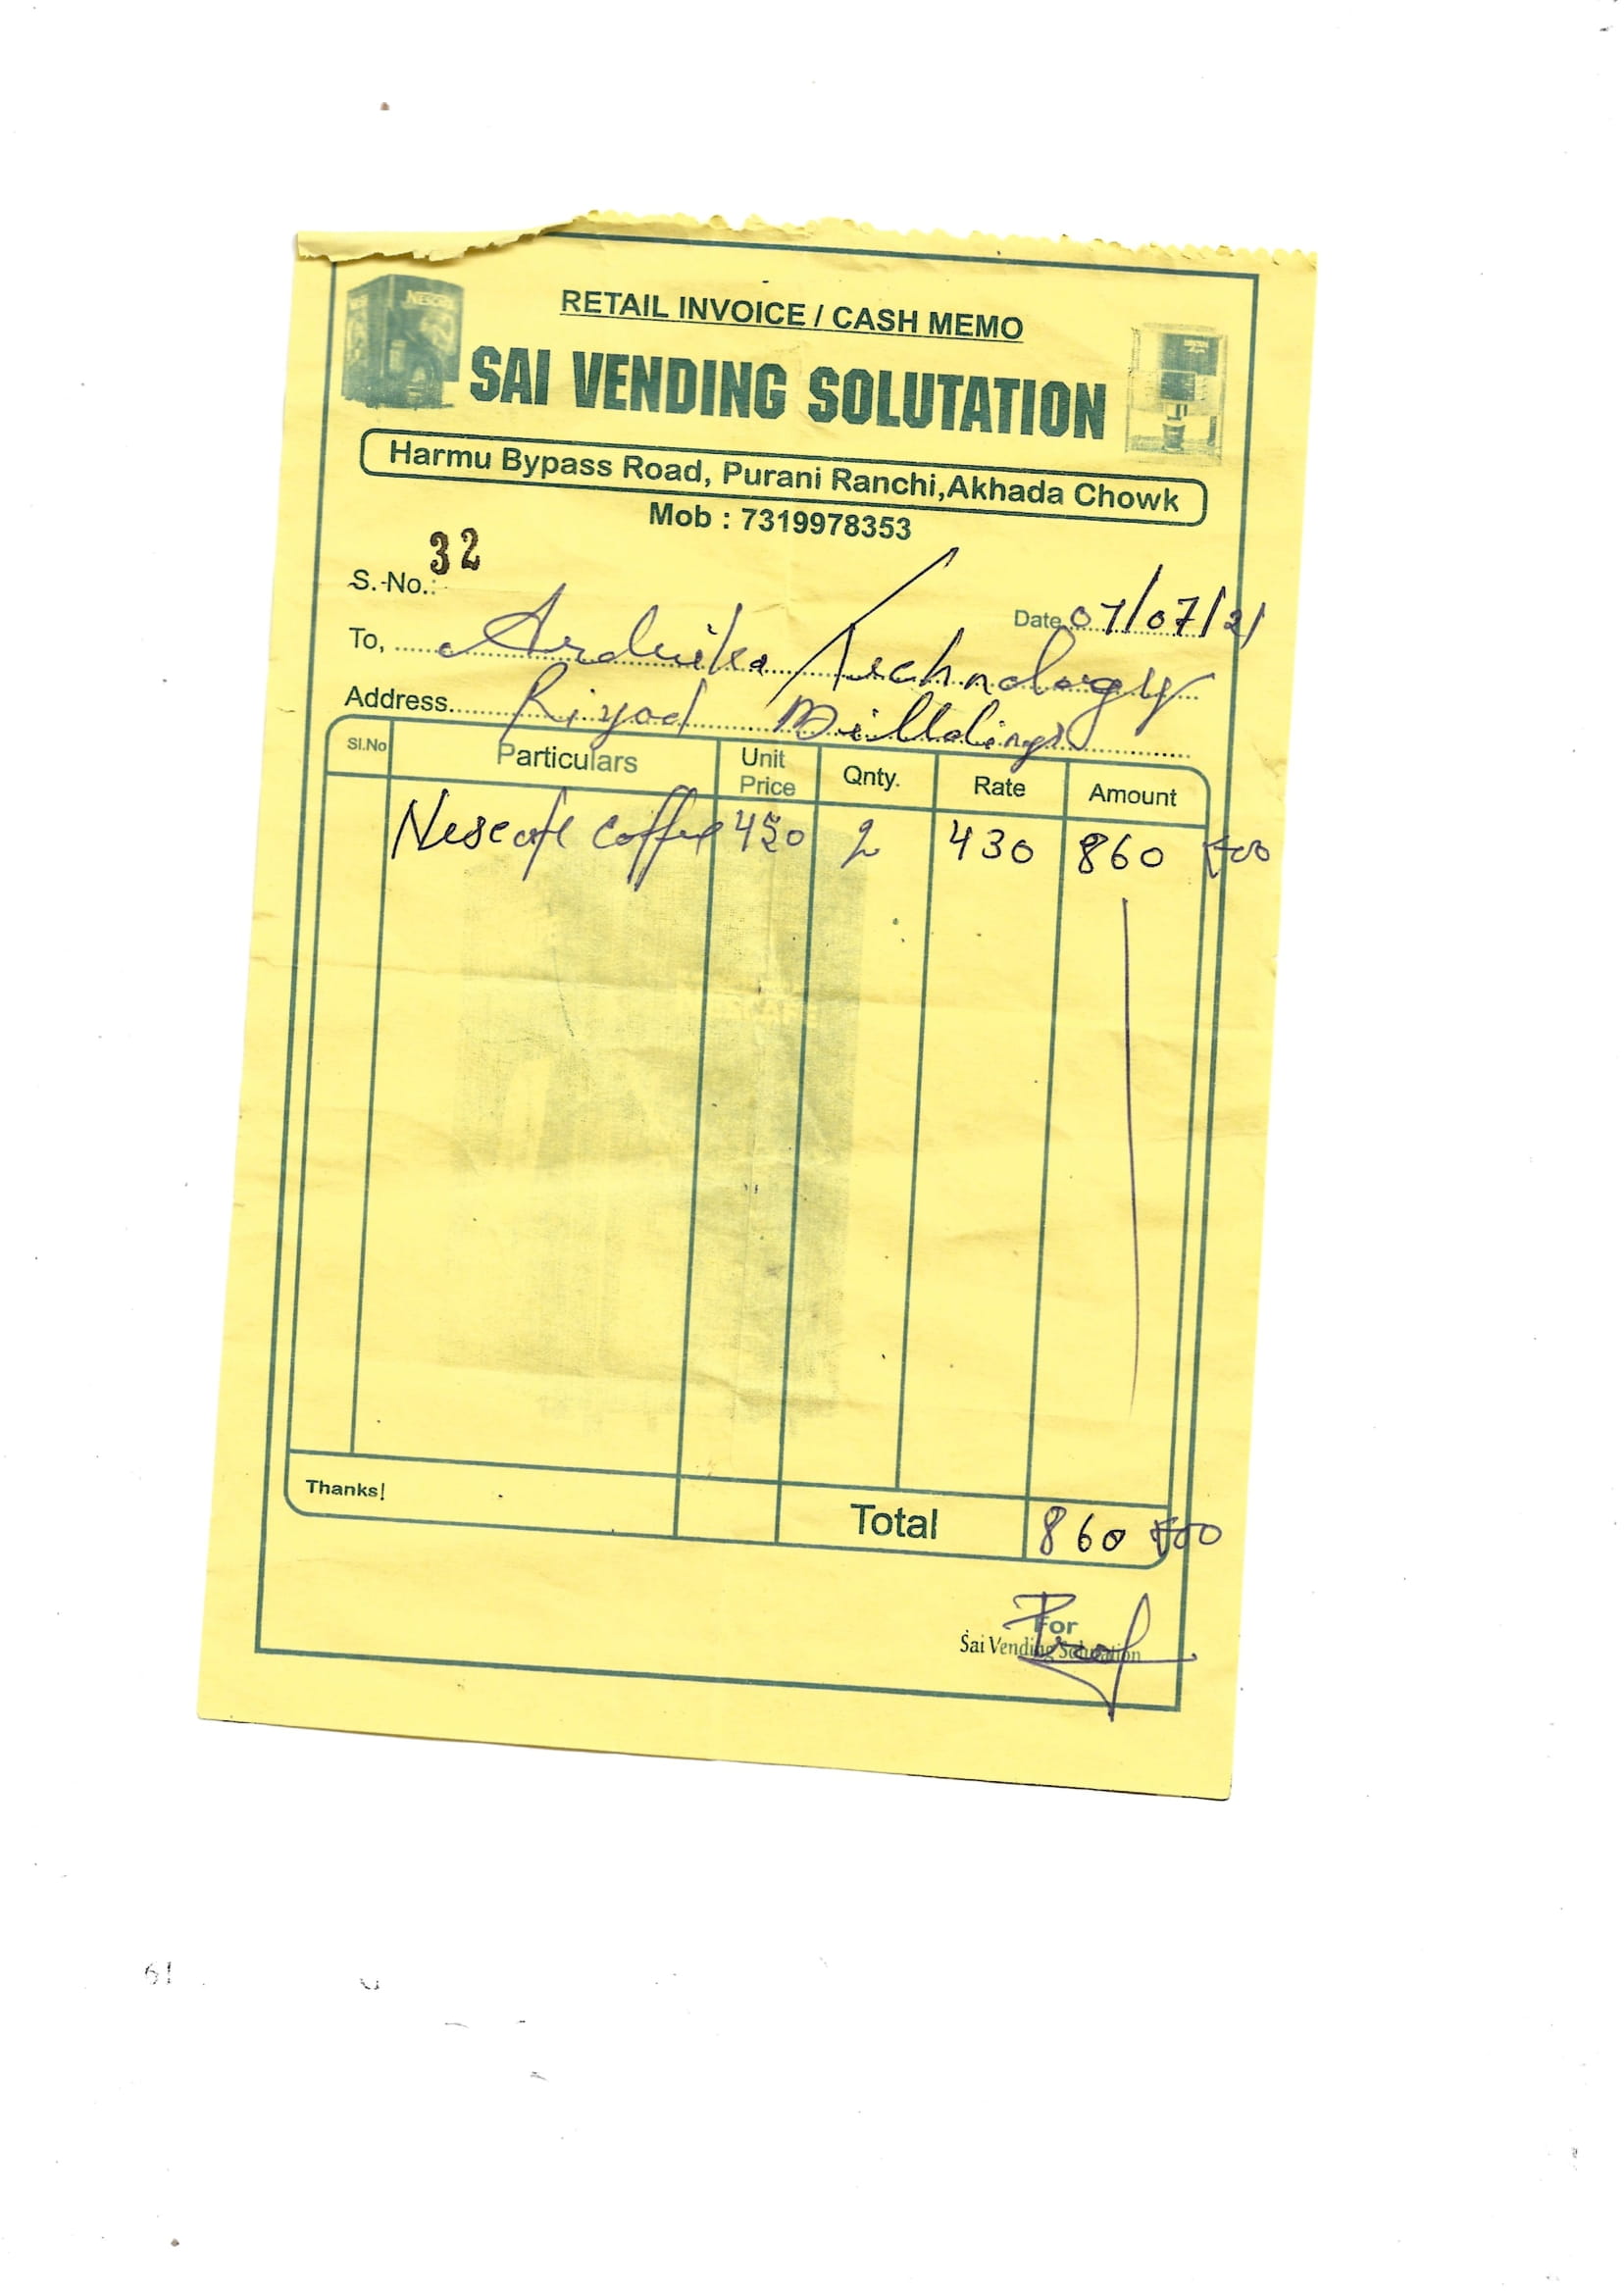 NESCAFE
RETAIL INVOICE / CASH MEMO
SAI VENDING SOLUTATION
Harmu Bypass Road, Purani Ranchi,Akhada Chowk
Mob : 7319978353
S.-No.: 32
Date 07/07/21
To, Technology
Address Riyad
Sl.No Particulars Unit Price Qnty. Rate Amount
Nescafe Coffee 450 2 430 860
NESCAFE
Thanks! Total 860
For
Sai Vending Solutation